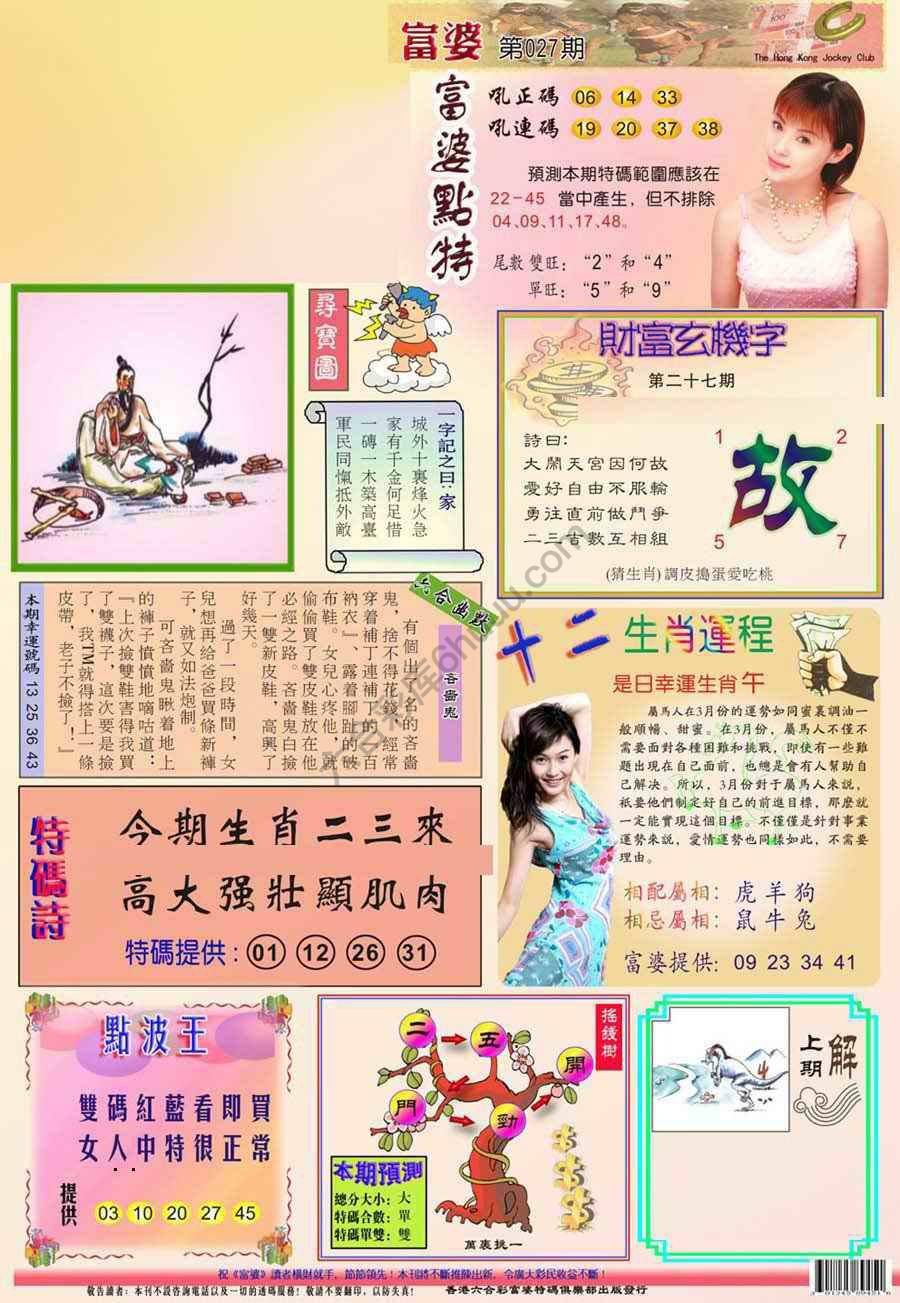 富婆 第027期
The Hong Kong Jockey Club
富婆點特
吼正碼 06 14 33
吼連碼 19 20 37 38
預測本期特碼範圍應該在
22-45 當中產生，但不排除
04、09、11、17、48。
尾數雙旺：“2”和“4”
單旺：“5”和“9”
尋寶圖
一字記之曰：家
城外十裏烽火急
家有千金何足惜
一磚一木築高臺
軍民同愾抵外敵
財富玄機字
第二十七期
詩曰:
大鬧天宮因何故
愛好自由不服輸
勇往直前做鬥爭
二三首數互相組
1 2
故
5 7
(猜生肖)調皮搗蛋愛吃桃
六合幽默
吝嗇鬼
有個出了名的吝嗇
鬼，捨不得花錢，經常
穿着補丁連補丁的“百
衲衣”、露着腳趾的破
布鞋。女兒心疼他，就
偷偷買了雙皮鞋放在他
必經之路。吝嗇鬼白撿
了一雙新皮鞋，高興了
好幾天。
過了一段時間，女
兒想再給爸爸買條新褲
子，就又如法炮制。
可吝嗇鬼瞅着地上
的褲子憤憤地嘀咕道：
“上次撿雙鞋害得我買
了雙襪子，這次要是撿
了，我TM就得搭上一條
皮帶，老子不撿了！”
本期幸運號碼 13 25 36 43
十二生肖運程
是日幸運生肖午
屬馬人在3月份的運勢如同蜜裏調油一
般順暢、甜蜜。在3月份，屬馬人不僅不
需要面對各種困難和挑戰，即使有一些難
題出現在自己面前，也總是會有人幫助自
己解决。所以，3月份對于屬馬人來説，
衹要他們制定好自己的前進目標，那麽就
一定能實現這個目標。不僅僅是針對事業
運勢來説，愛情運勢也同樣如此，不需要
理由。
相配屬相：虎羊狗
相忌屬相：鼠牛兔
富婆提供：09 23 34 41
特碼詩
今期生肖二三來
高大强壯顯肌肉
特碼提供：01 12 26 31
點波王
雙碼紅藍看即買
女人中特很正常
提供 03 10 20 27 45
搖錢樹
二 五 開
門 勁
本期預測
總分大小：大
特碼合數：單
特碼單雙：雙
萬裏挑一
上期解
祝《富婆》讀者橫財就手，節節領先！本刊將不斷推陳出新，令廣大彩民收益不斷！
敬告讀者：本刊不設咨詢電話以及一切的透碼服務！敬請不要翻印，以防失真！ 香港六合彩富婆特碼俱樂部出版發行